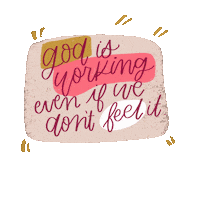 god is
working
even if we
don't feel it